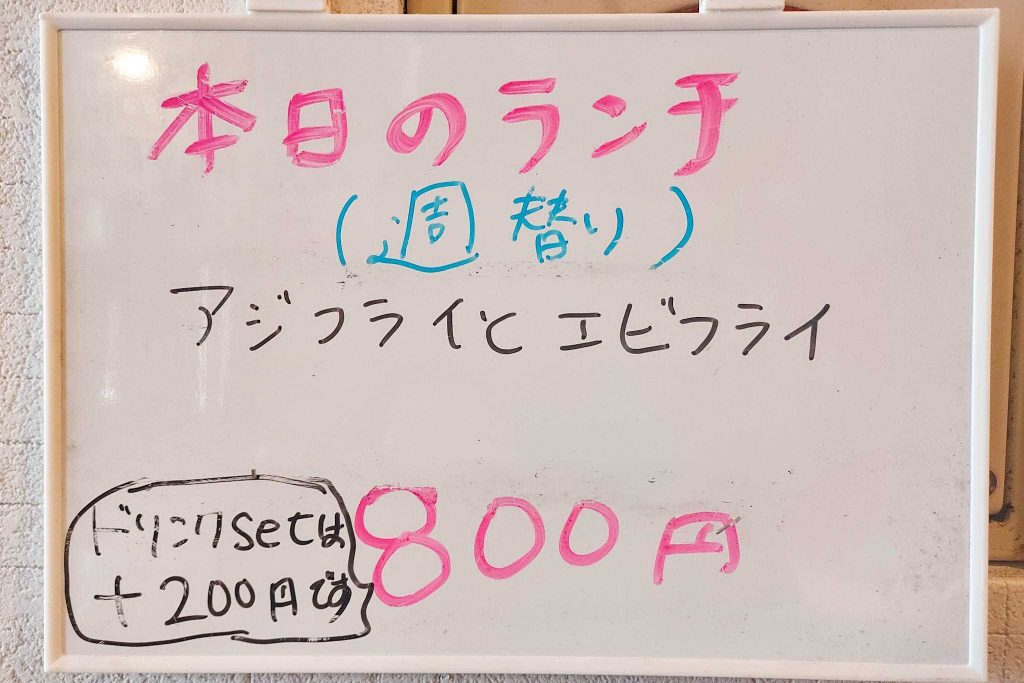 本日のランチ
(週替り)
アジフライとエビフライ
800円
ドリンクsetは
+200円です